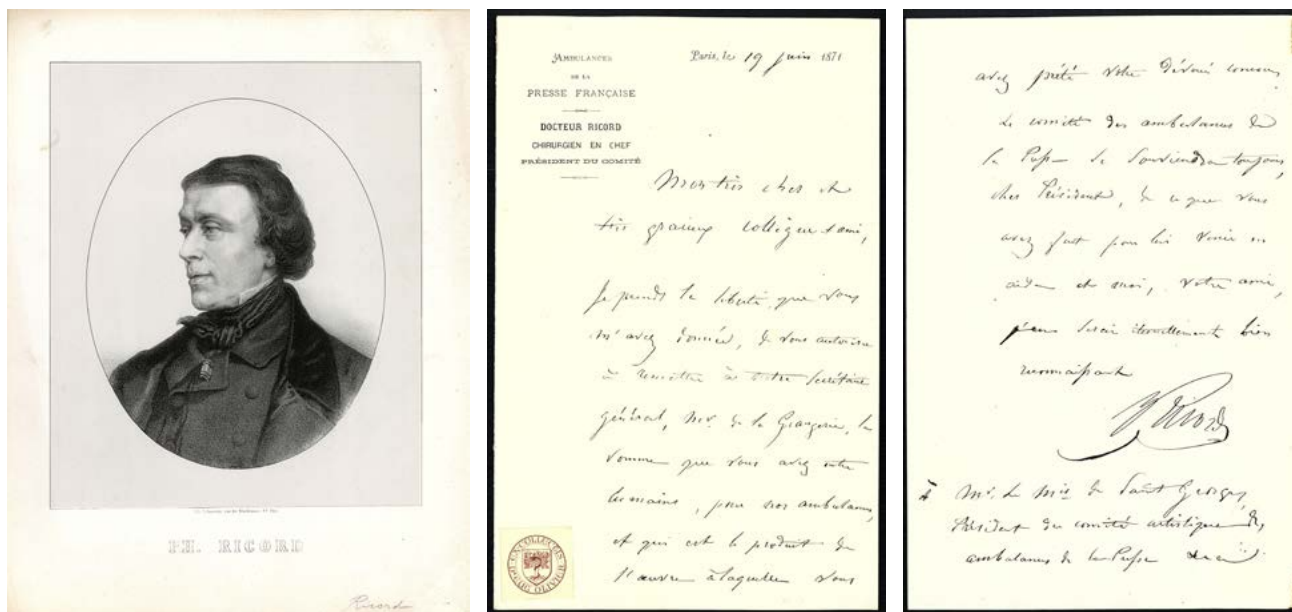 PH. RICORD
Ricord
AMBULANCES
DE LA
PRESSE FRANÇAISE
DOCTEUR RICORD
CHIRURGIEN EN CHEF
PRÉSIDENT DU COMITÉ
Paris, le 19 juin 1871
Mon très cher et
très gracieux collègue & ami,
Je prends la liberté, que vous
m'avez donnée, de vous autoriser
à remettre à votre Secrétaire
général, Mr. de la Grangerie, la
somme que vous avez entre
les mains, pour nos ambulances,
et qui est le produit de
l'œuvre à laquelle vous
EX COLLECTIS
avez prêté votre dévoué concours
Le comité des ambulances de
la Presse se souviendra toujours,
cher Président, de ce que vous
avez fait pour lui venir en
aide et moi, votre ami,
j'en serai éternellement bien
reconnaissant
Ricord
à Mr. le Mis. de Saint Georges,
Président du comité artistique des
ambulances de la Presse